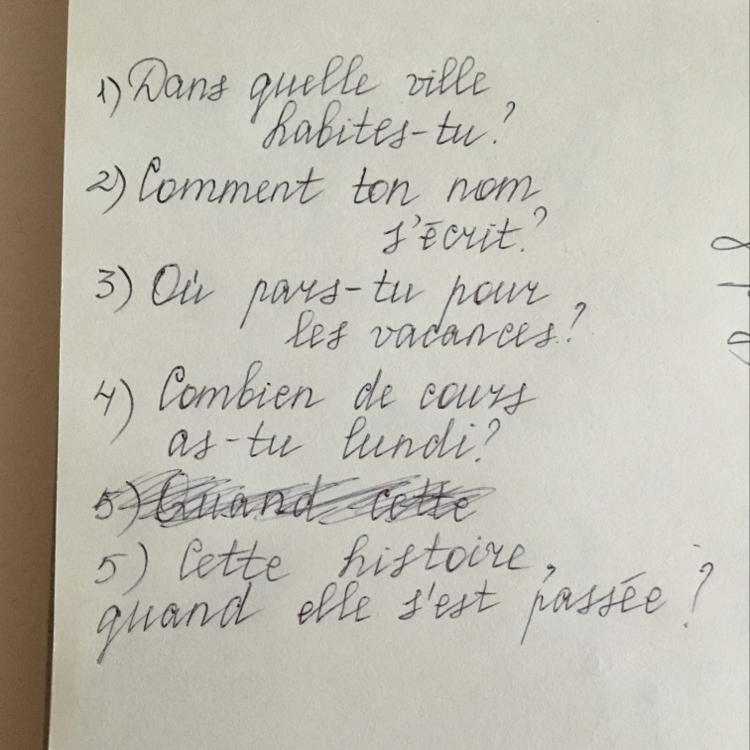 1) Dans quelle ville
habites-tu?
2) Comment ton nom
s'écrit?
3) Où pars-tu pour
les vacances?
4) Combien de cours
as-tu lundi?
5) Quand cette
5) Cette histoire,
quand elle s'est passée?